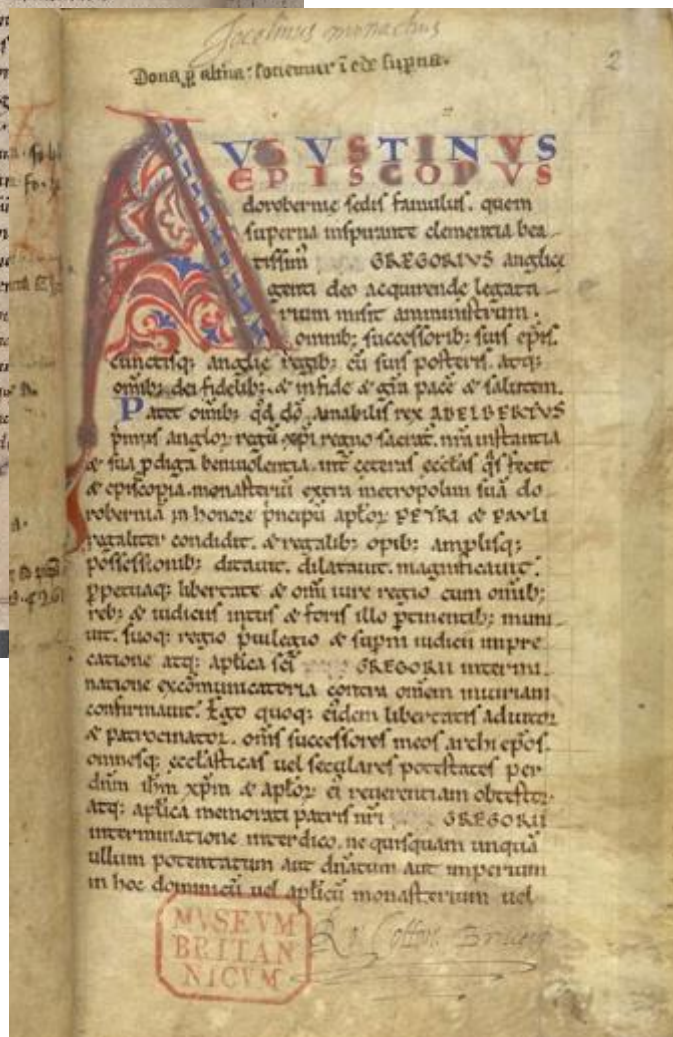 Jocelinus monachus
2
Dona p̲ altina: sociemur ī ede sup̲na.
AVGVSTINVS
EPISCOPVS
dorobernie sedis famulus. quem
superna inspirante clementia bea-
tissim̄ GREGORIVS anglice
genti deo acquirende legata-
rium misit amministrum.
omnib; successorib; suis ep̄is.
cunctisq; anglie regib; cū suis posteris. atq;
omīb; dei fidelib;. & in fide & gr̄a pacē & salutem.
Patet omīb; qđ dō amabilis rex ADELBERTVS
p̄mus angloꝝ regū xp̄i regno sacrat. nr̄a instantia
& sua p̱diga beniuolentia. int̄ ceteras eccl̄as q̄s fecit
& episcopia. monasteriū extra metropolim suā do
roberniā in honore p̄ncipū apl̄oꝝ PETRI & PAVLI
regaliter condidit. & regalib; opib; amplisq;
possessionib; ditauit. dilatauit. magnificauit.
p̱petuaq; libertate & om̄i iure regio cum omīb;
reb; & iudiciis intus & foris illo p̱tinentib; muni
uit. suoq; regio p̄uilegio & sup̄ni iudicii impre
catione atq; apl̄ica sc̄i GREGORII intermi
natione excōmunicatoria contra omem iniuriam
confirmauit. Ego quoq; eidem libertatis adiutor
& patrocinator. om̄s successores meos archi ep̄os.
omnesq; eccl̄asticas uel seculares potestates per
dn̄m ih̄m xp̄m & apl̄oꝝ ei reuerentiam obtestor.
atq; apl̄ica memorati patris nr̄i GREGORII
interminatione interdico. ne quisquam unquā
ullum potentatum aut dn̄atum aut imperium
in hoc dominicū uel apl̄icū monasterium uel
MVSEVM
BRITAN
NICVM
Ro: Cotton Bruceus